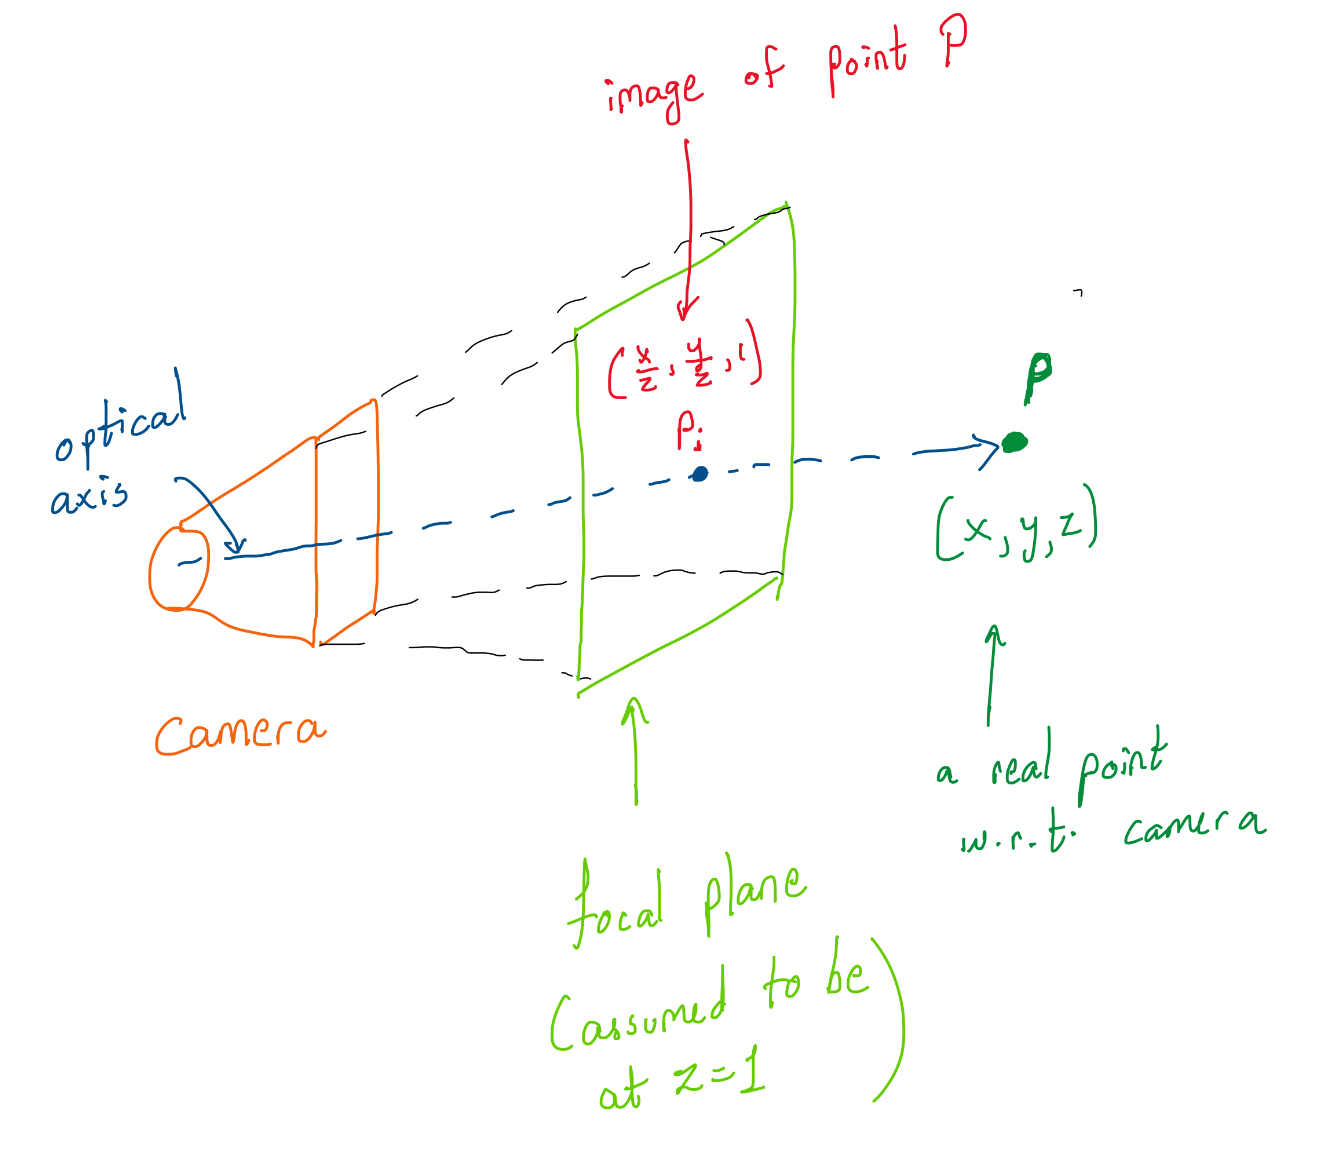 image of point P
(x/z, y/z, 1)
Pi
optical
axis
P
(x, y, z)
Camera
a real point
w.r.t. camera
focal plane
(assumed to be
at z=1)